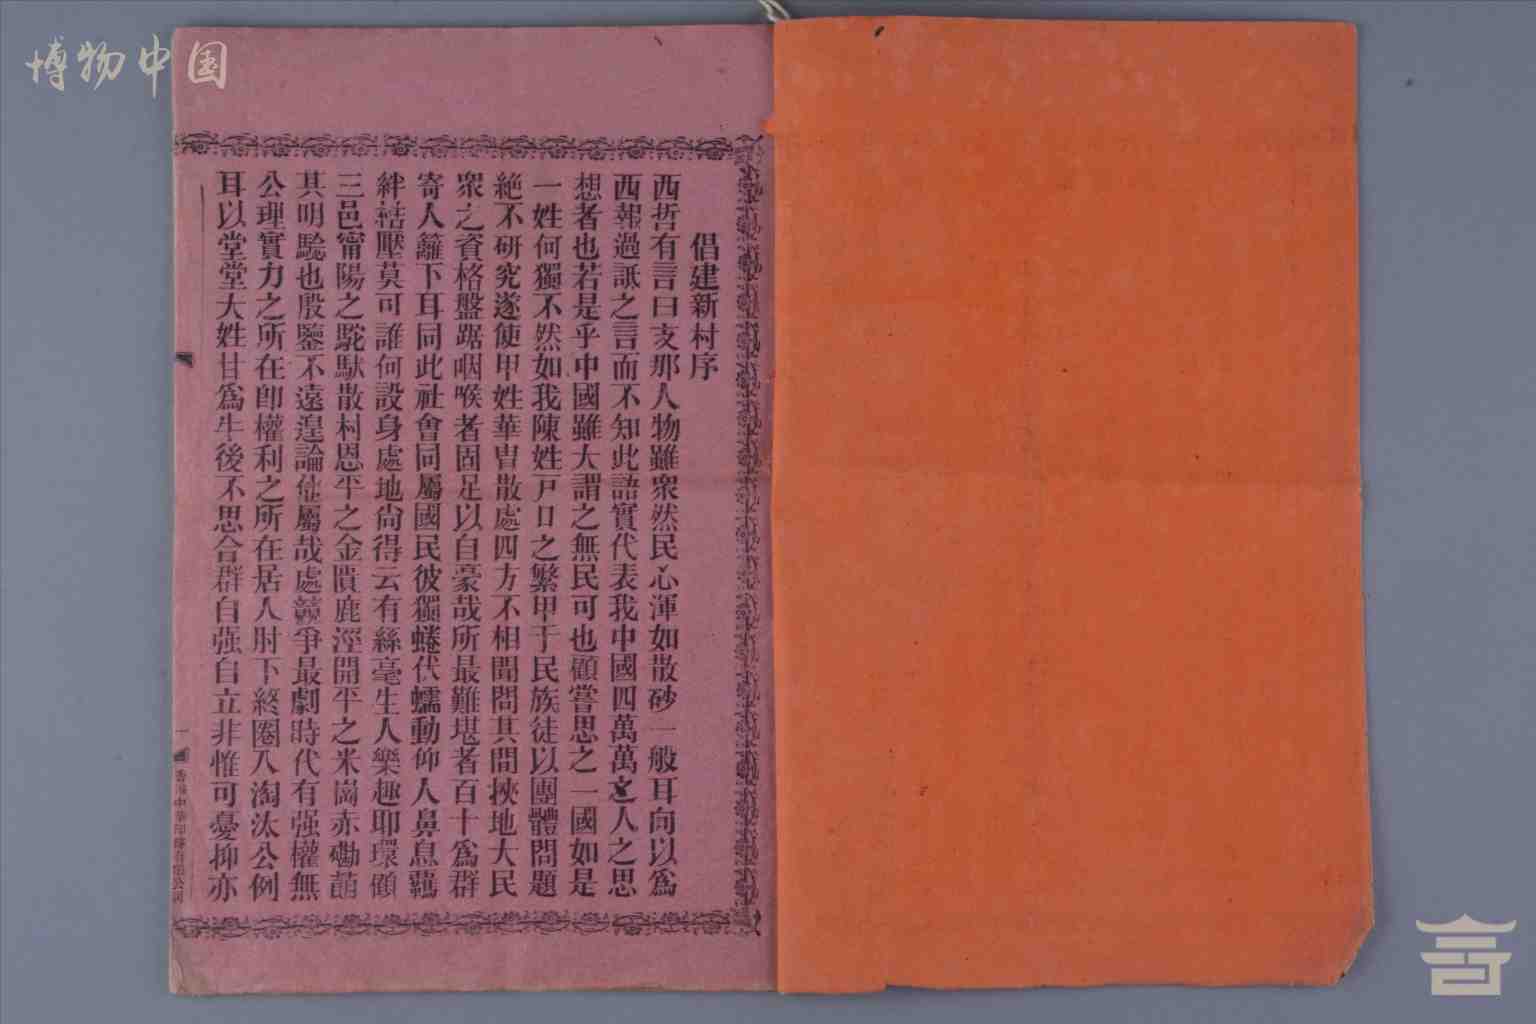 博物中国
倡建新村序
西哲有言曰支那人物雖衆然民心渾如散砂一般耳向以爲
西報過詆之言而不知此語實代表我中國四萬萬之人之思
想者也若是乎中國雖大謂之無民可也顧嘗思之一國如是
一姓何獨不然如我陳姓戸口之繁甲于民族徒以團體問題
絕不研究遂使甲姓華冑散處四方不相聞問其間挾地大民
衆之資格盤踞咽喉者固足以自豪哉所最難堪者百十爲群
寄人籬下耳同此社會同屬國民彼獨蜷伏蠕動仰人鼻息羈
絆壓莫可誰何設身處地尙得云有絲毫生人樂趣耶環顧
三邑甯陽之駝馱散村恩平之金慣鹿涇開平之米崗赤磡
其明驗也殷鑒不遠遑論他屬哉處競爭最劇時代有强權無
公理實力之所在卽權利之所在居人肘下終圈入淘汰公例
耳以堂堂大姓甘爲牛後不思合群自强自立非惟可憂抑亦
一
香港中華印務有限公司